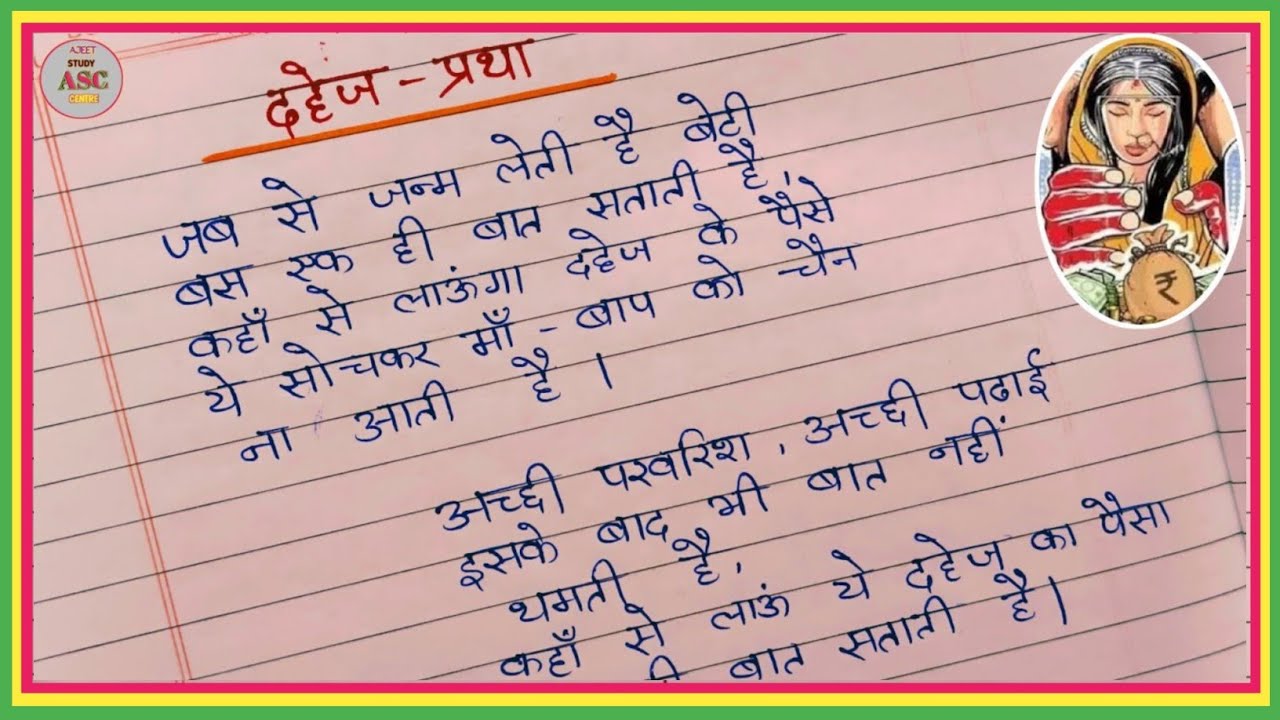 AJEET
STUDY
ASC
CENTRE
दहेज - प्रथा
जब से जन्म लेती है बेटी
बस एक ही बात सताती है,
कहाँ से लाऊंगा दहेज के पैसे
ये सोचकर माँ - बाप को चैन
ना आती है ।
अच्छी परवरिश, अच्छी पढाई
इसके बाद भी बात नहीं
थमती है,
कहाँ से लाऊं ये दहेज का पैसा
बात सताती है ।
₹